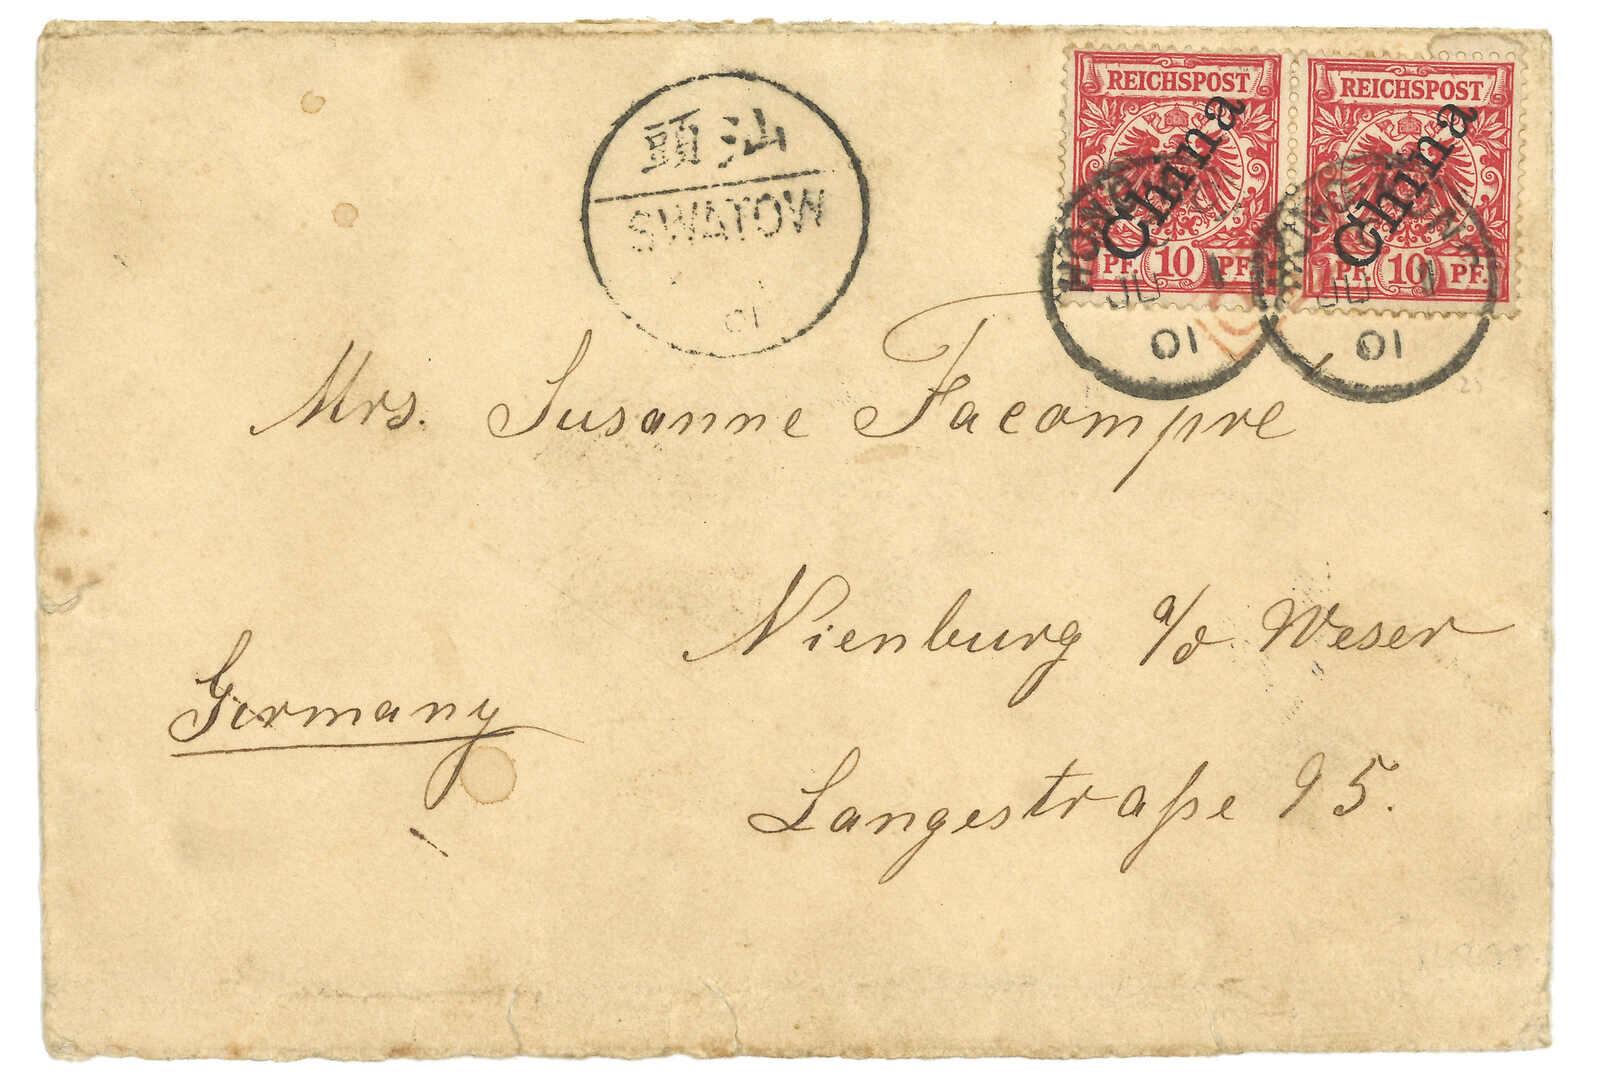 REICHSPOST
China
PF. 10 PF.
REICHSPOST
China
PF. 10 PF.
JU 1
01
JU 1
01
汕頭
SWATOW
01
Mrs. Susanne Facompre
Nienburg a/d Weser
Germany
Langestraße 95.